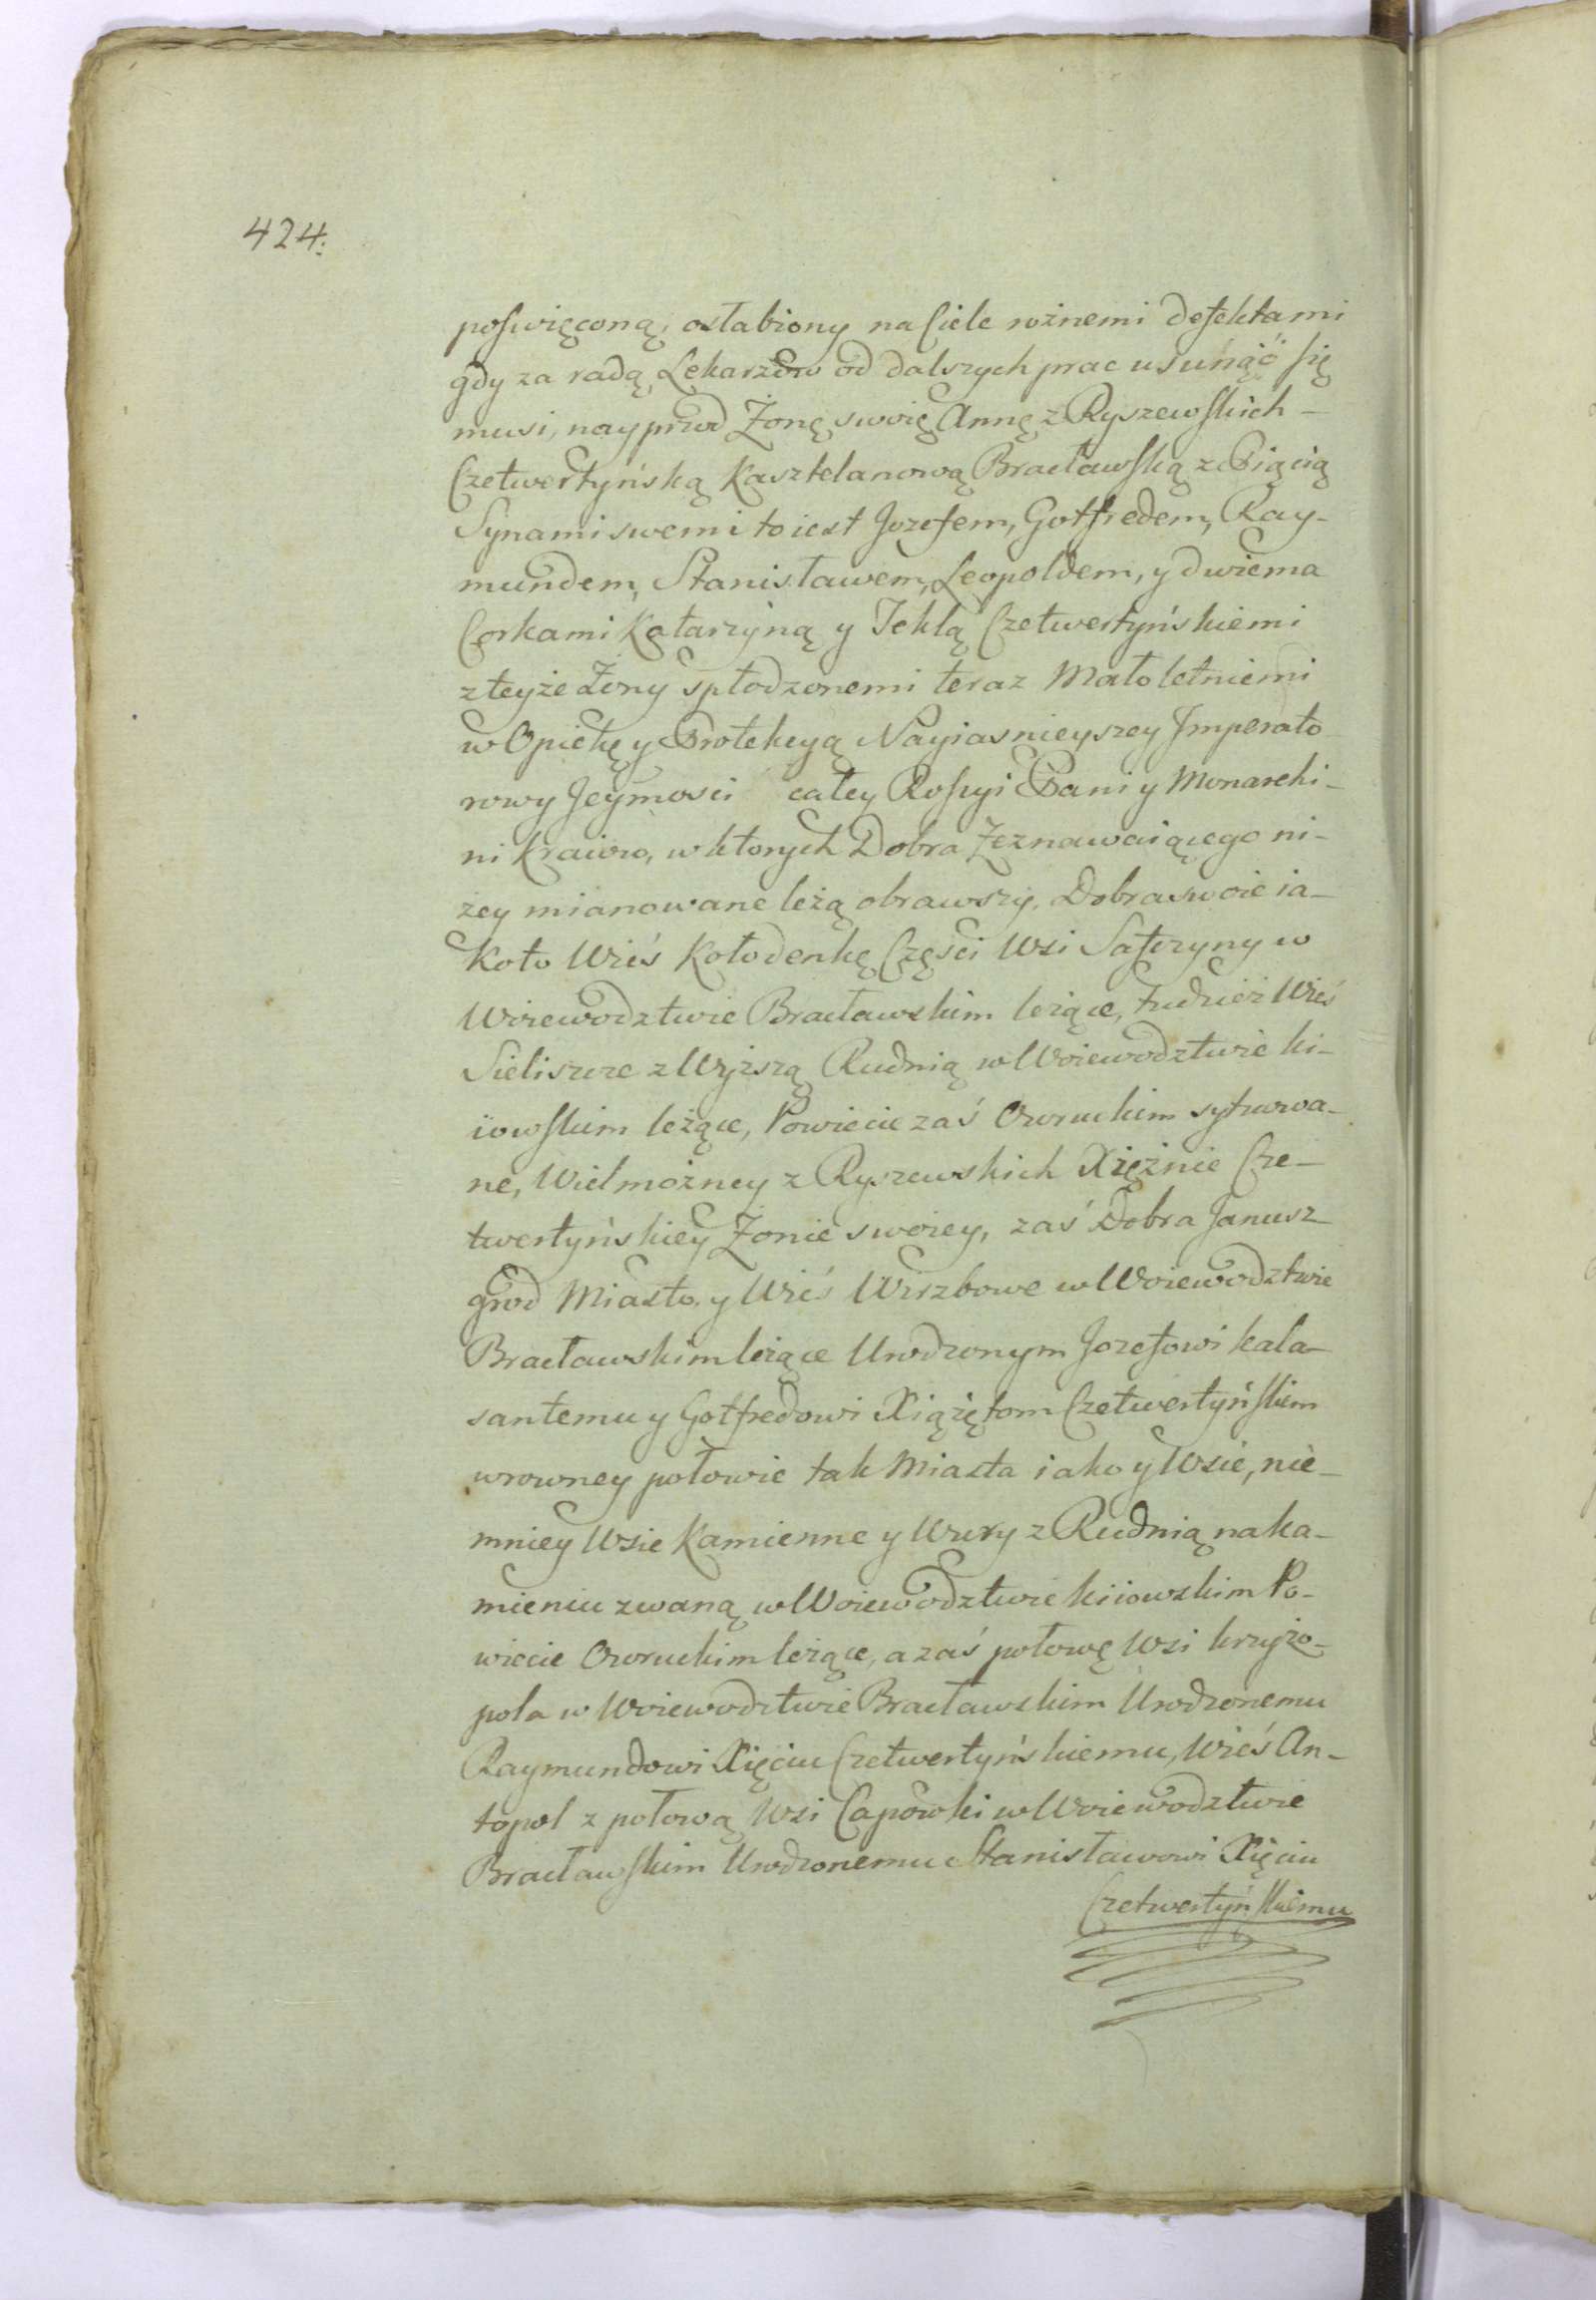 424.
poswięconą, osłabiony na Ciele rożnemi defektami
gdy za radą Lekarzow od dalszych prac usunąć się
musi, nayprod Żonę swoię Annę z Ryszewskich –
Czetwertyńską Kasztelanową Bracławską z Pięcią
Synami swemi to iest Jozefem, Gotfredem, Ray-
mundem, Stanisławem, Leopoldem, y dwiema
Corkami Katarzyną y Teklą Czetwertyńskiemi
z teyże Żony spłodzonemi teraz Małoletniemi
w Opiekę y Protekcyą Nayiasnieyszey Imperato
rowy Jeymosci całey Rossyi Pani y Monarchi-
ni Kraiow, w ktorych Dobra Zeznawaiącego ni-
żey mianowane leżą obrawszy. Dobra swoie ia-
koto Wieś Kołodenkę Części Wsi Satczyny w
Woiewodztwie Bracławskim leżące, tudzież Wieś
Sieliszcze z Wyższą Rudnią w Woiewodztwie Ki-
iowskim leżące, Powiecie zaś Owruckim sytuowa-
ne, Wielmożney z Ryszewskich Xiężnie Cze-
twertyńskiey Żonie swoiey, zaś Dobra Janusz
grod Miasto y Wieś Wirzbowe w Woiewodztwie
Bracławskim leżące Urodzonym Jozefowi Kala-
santemu y Gotfredowi Xiążętom Czetwertyńskim
w rowney połowie tak Miasta iako y Wsie, nie-
mniey Wsie Kamienne y Wury z Rudnią na Ka-
mieniu zwaną w Woiewodztwie Kiiowskim Po-
wiecie Owruckim leżące, a zaś połowę Wsi Krzyżo-
pola w Woiewodztwie Bracławskim Urodzonemu
Raymundowi Xięciu Czetwertyńskiemu, Wieś An-
topol z połową Wsi Capowki w Woiewodztwie
Bracławskim Urodzonemu Stanisławowi Xięciu
Czetwertyńskiemu